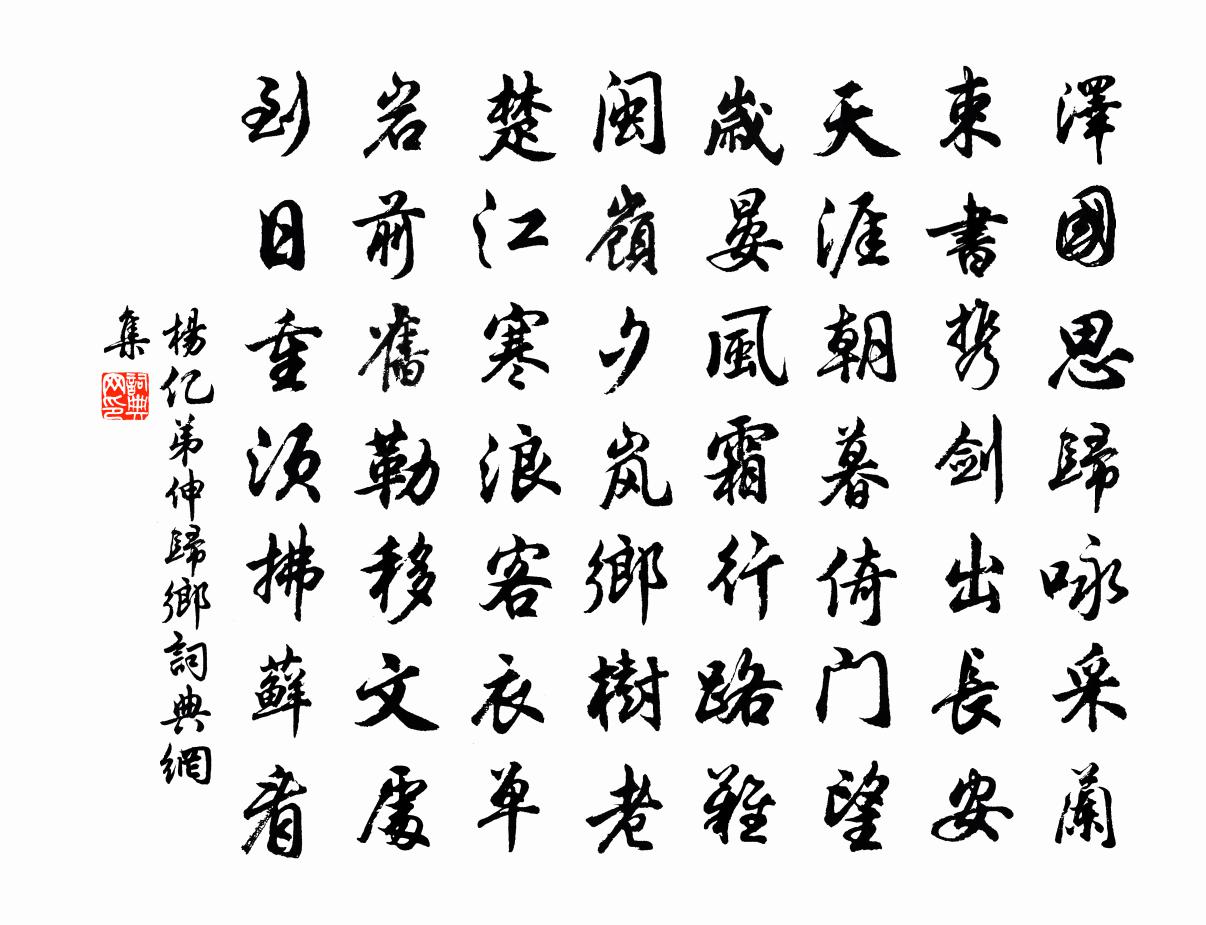 澤國思歸咏采蘭
束書携剑出長安
天涯朝暮倚门望
歲晏風霜行路難
閩嶺夕岚鄉樹老
楚江寒浪客衣单
岩前舊勒移文處
到日重須拂蘚看
楊亿弟伸歸鄉詞典網
集
詞典网印